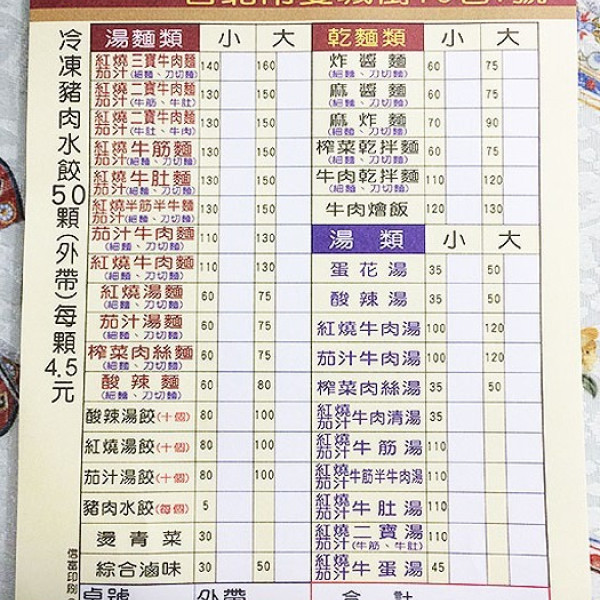 冷凍豬肉水餃50顆(外帶)每顆4.5元
湯麵類 小 大
紅燒 茄汁 三寶牛肉麵 (細麵、刀切麵) 140 160
紅燒 茄汁 二寶牛肉麵 (牛筋、牛肚) 130 150
紅燒 茄汁 二寶牛肉麵 (牛肚、牛肉) 130 150
紅燒 茄汁 牛筋麵 (細麵、刀切麵) 130 150
紅燒 茄汁 牛肚麵 (細麵、刀切麵) 130 150
紅燒 茄汁 半筋半牛麵 (細麵、刀切麵) 130 150
茄汁牛肉麵 (細麵、刀切麵) 110 130
紅燒牛肉麵 (細麵、刀切麵) 110 130
紅燒湯麵 (細麵、刀切麵) 60 75
茄汁湯麵 (細麵、刀切麵) 60 75
榨菜肉絲麵 (細麵、刀切麵) 60 75
酸辣麵 (細麵、刀切麵) 60 80
酸辣湯餃(十個) 80 100
紅燒湯餃(十個) 80 100
茄汁湯餃(十個) 80 100
豬肉水餃(每個) 5
燙青菜 30
綜合滷味 30 50
乾麵類 小 大
炸醬麵 (細麵、刀切麵) 60 75
麻醬麵 (細麵、刀切麵) 60 75
麻炸麵 (細麵、刀切麵) 70 90
榨菜乾拌麵 (細麵、刀切麵) 60 75
牛肉乾拌麵 (細麵、刀切麵) 110 120
牛肉燴飯 120 130
湯類 小 大
蛋花湯 35 50
酸辣湯 35 50
紅燒牛肉湯 100 120
茄汁牛肉湯 100 120
榨菜肉絲湯 35 50
紅燒 茄汁 牛肉清湯 35
紅燒 茄汁 牛筋湯 110
紅燒 茄汁 牛筋半牛肉湯 110
紅燒 茄汁 牛肚湯 110
紅燒 茄汁 二寶湯 (牛筋、牛肚) 110
紅燒 茄汁 牛蛋湯 45
信富印刷
桌號 外帶 合計